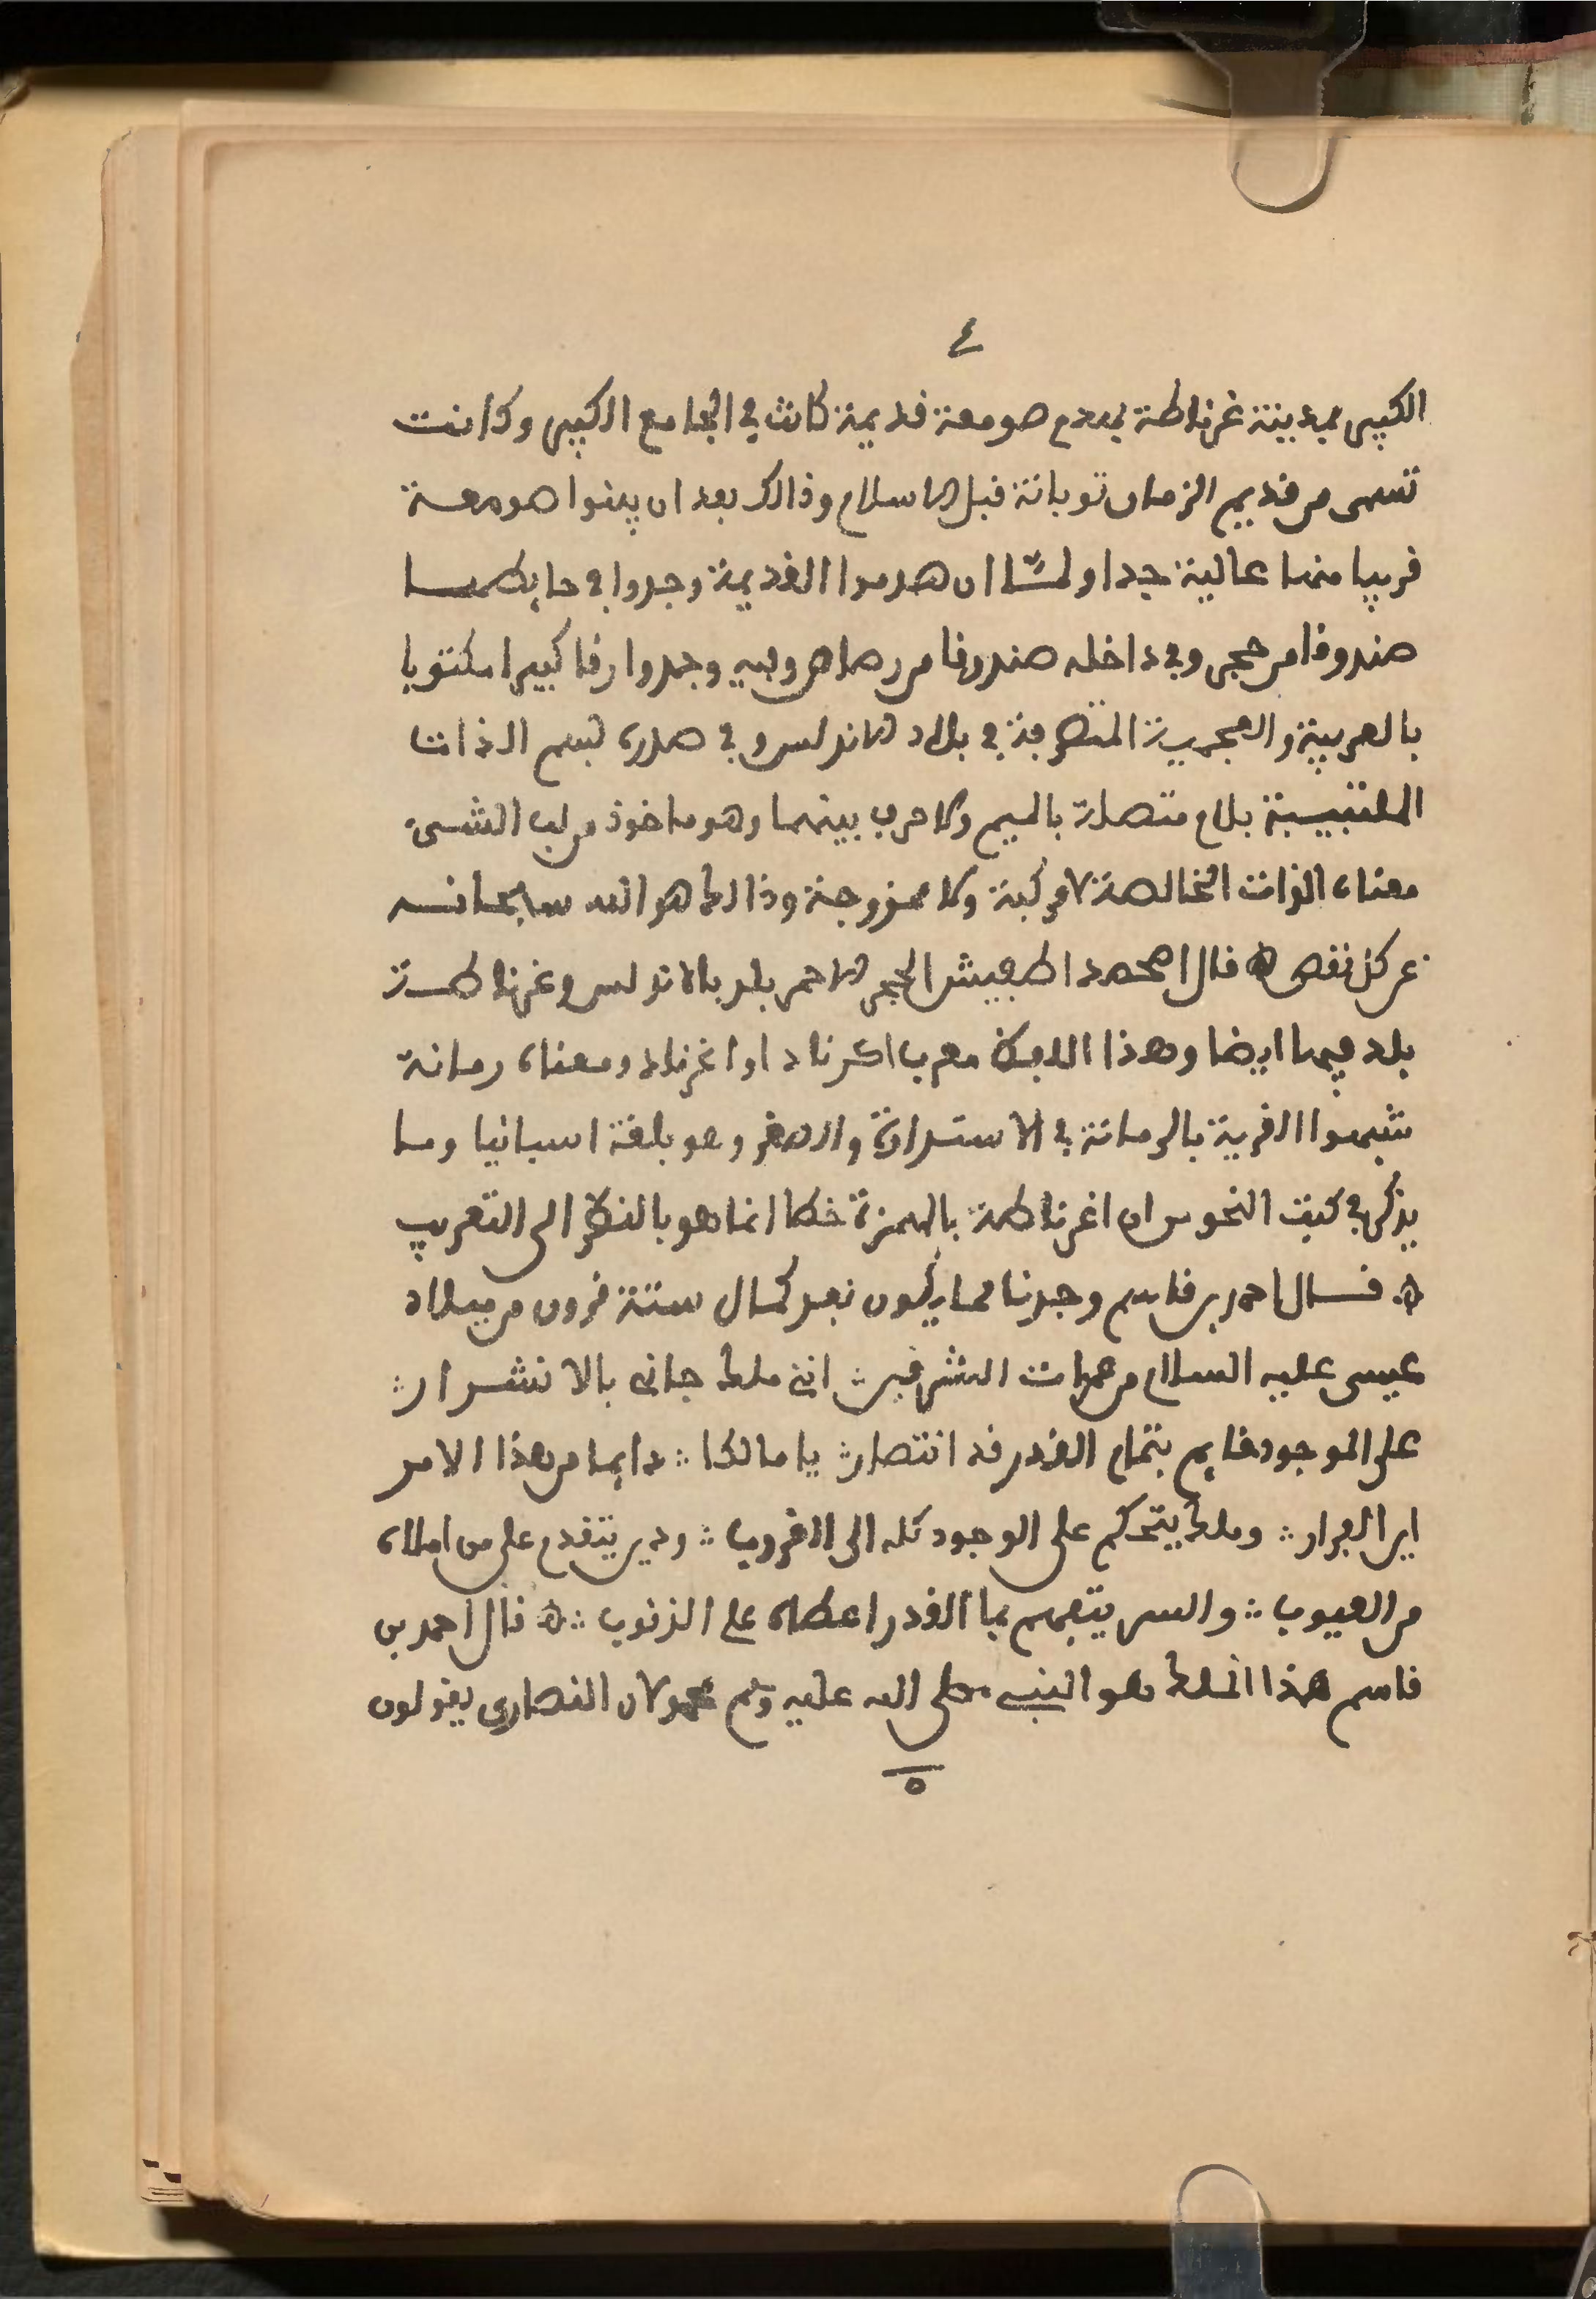 ٤
الكبير بمدينة غرناطة بهدم صومعة قديمة كانت في الجامع الكبير وكانت
تسمى من قديم الزمان توبانة قبل الاسلام وذالك بعد ان يبنوا صومعة
قريبا منها عالية جدا ولمّا ان هدموا القديمة وجدوا في حايطها
صندوقا من حجر وفي داخله صندوقا من رصاص وفيه وجدوا رقا كبيرا مكتوبا
بالعربية والعجمية المتصرفة في بلاد الاندلس وفي صدره لبسم الذات
الملتبسة بلام متصلة بالميم ولا حرف بينهما وهو ماخوذ من لب الشيء
معناه الذات الخالصة لا مركبة ولا ممزوجة وذالك هو الله سبحانه
عن كل نقص ه قال امحمد اطبيش الحجر الاحمر بلد بالاندلس وغرناطة
بلد فيها ايضا وهذا اللفظ معرب اكرناد او اغرناد ومعناه رمانة
شبهوا القرية بالرمانة في الاستدارة والصغر وهو بلغة اسبانيا وما
يذكر في كتب النحو من ان اغرناطة بالهمزة خطا انما هو بالنظر الى التعريب
ه قال احمد بن قاسم وجدنا مما يكون بعد كمال ستة قرون من ميلاد
عيسى عليه السلام من جهات الشرقين ؞ اتى ملك جانى بالانشرار ؞
على الموجود قايم بتمام القدر قد انتصار ؞ يا مالكا ؞ دايما من هذا الامر
اين الفرار ؞ وملك يتحكم على الوجود كله الى الغروب ؞ ودين يتقدم على من املاه
من العيوب ؞ والسر يتفهم بما القدر اعطاه على الذنوب ؞ ه قال احمد بن
قاسم هذا الملك هو النبي صلى الله عليه وسلم لان النصارى يقولون
٥